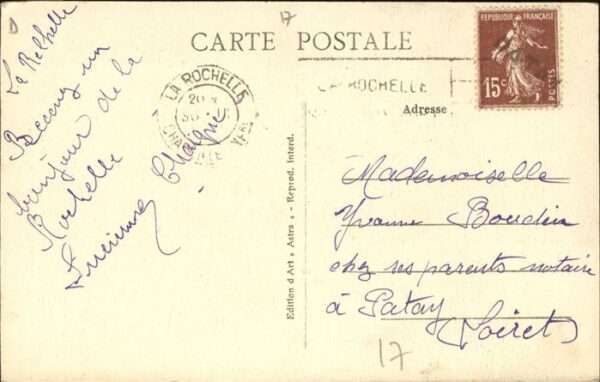 D
17
CARTE POSTALE
La Rochelle
Recevez un
bonjour de la
Rochelle
LA ROCHELLE
20
REPUBLIQUE FRANÇAISE
15c
POSTES
LA ROCHELLE
Adresse
Edition d'Art « Astra » - Reprod. interd.
Mademoiselle
Yvonne Boudin
chez ses parents notaire
à Patay
(Loiret)
17